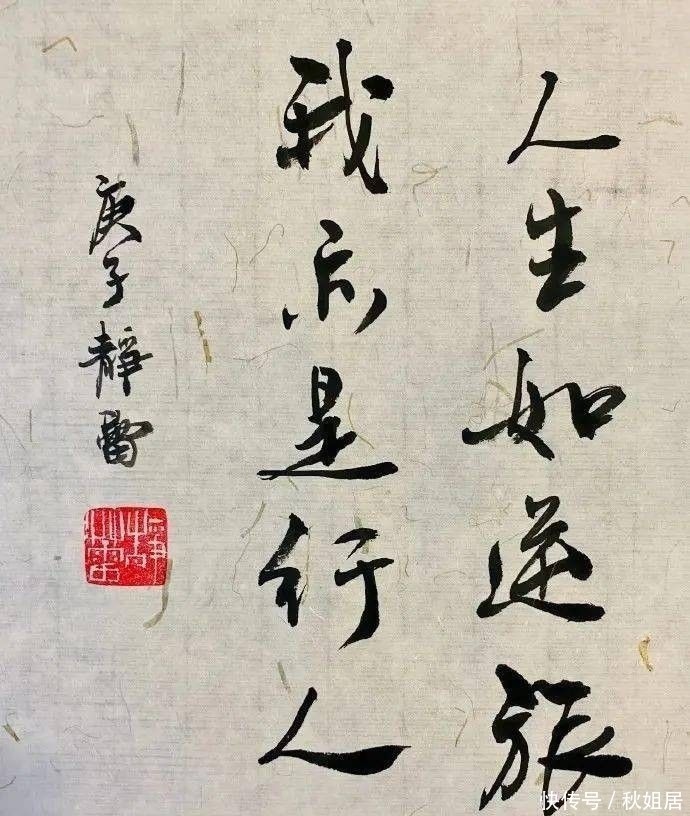 人生如逆旅
我亦是行人
庚子静雷
静蕾
快传号/秋姐居